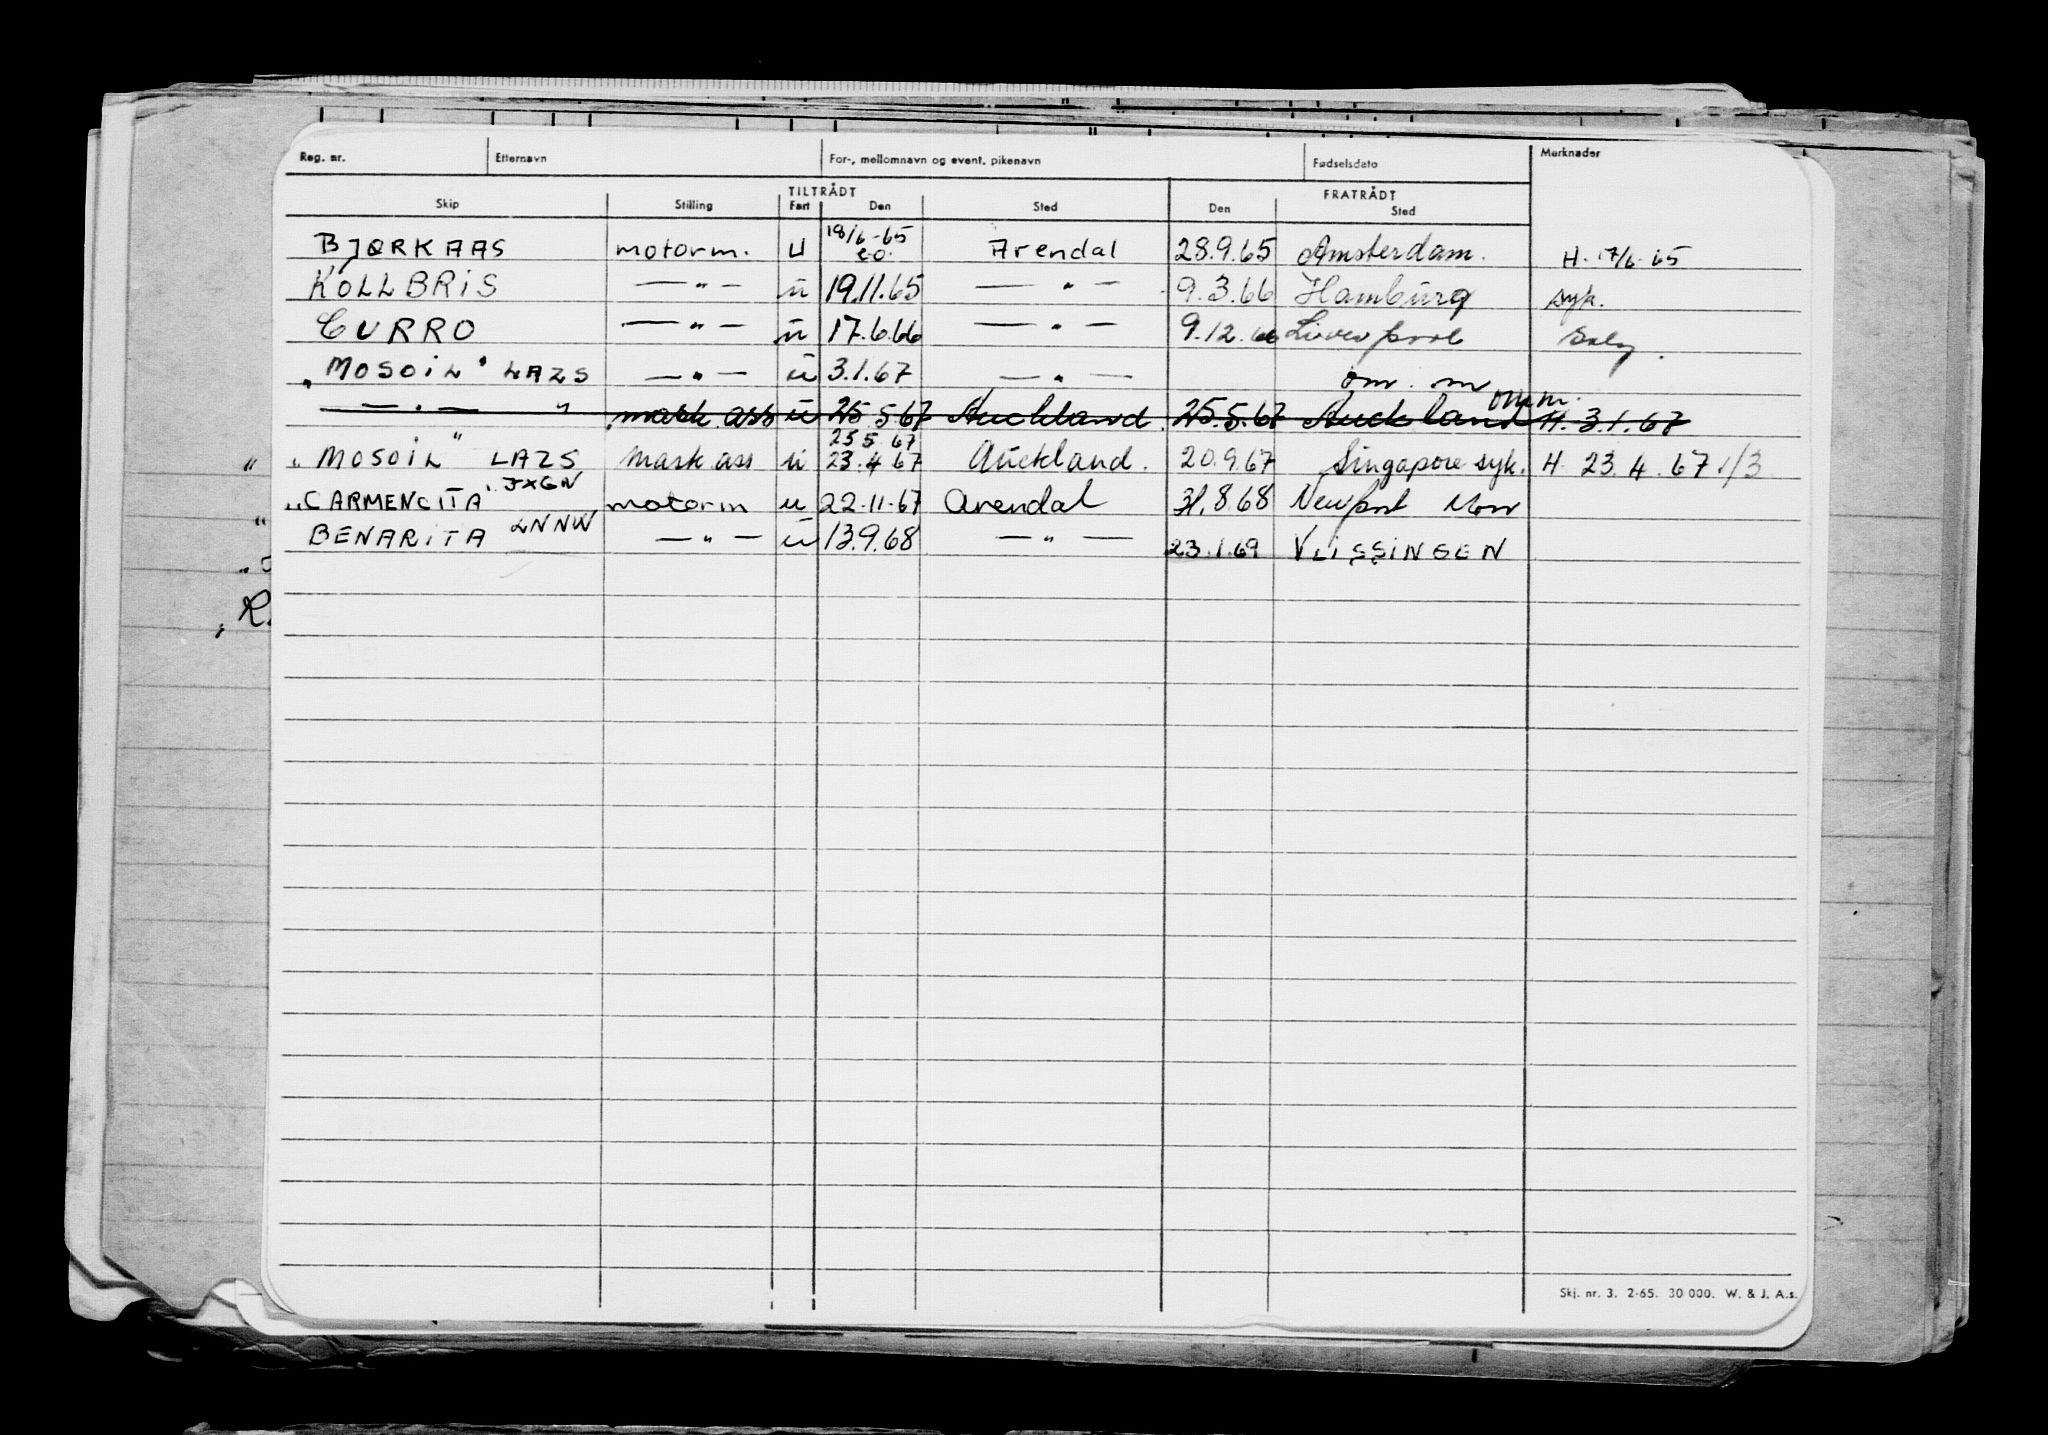 Reg. nr. Etternavn For-, mellomnavn og event. pikenavn Fødselsdato Merknader
TILTRÅDT FRATRÅDT
Skip Stilling Fart Den Sted Den Sted
BJØRKAAS motorm. U 18/6-65 e.o. Arendal 28.9.65 Amsterdam. H. 17/6-65
KOLLBRIS — " — ū 19.11.65 — " — 9.3.66 Hamburg syk.
CURRO — " — ū 17.6.66 — " — 9.12.66 Liverpool salg.
"MOSOIL" LAZS — " — ū 3.1.67 — " — om. m
— " — " mask. ass ū 25.5.67 Auckland. 25.5.67 Auckland omm. H. 3.1.67
"MOSOIL" LAZS mask ass ū 25 5 67 23.4 67 Auckland. 20.9.67 Singapore syk. H. 23.4.67 1/3
"CARMENCITA" JXGN motorm u 22-11-67 Arendal 31.8.68 Newport Mon
BENARITA LNNW — " — ū 13.9.68 — " — 23.1.69 VLISSINGEN
R.
Skj. nr. 3. 2-65. 30 000. W. & J. A.s.